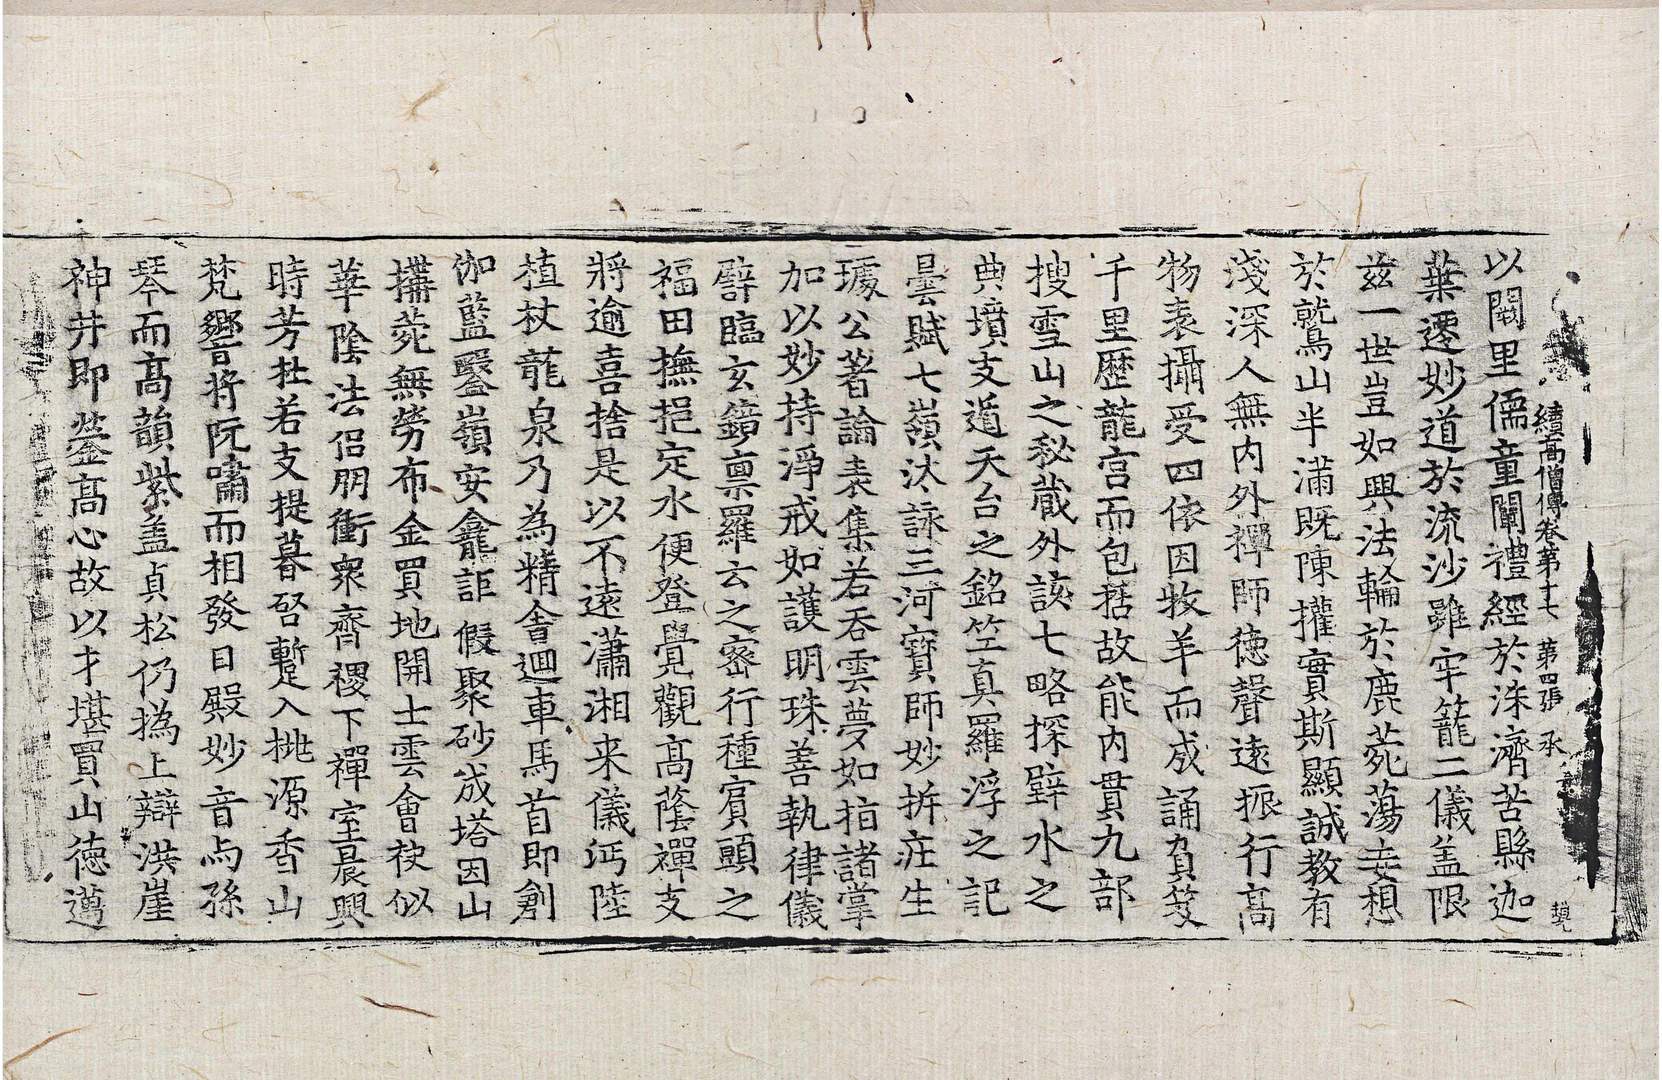 續高僧傳卷第十七 第四張 承
以闕里儒童闡禮經於洙濟苦縣迦
葉遷妙道於流沙雖牢籠二儀盖限
茲一世豈如興法輪於鹿菀蕩妄想
於鷲山半滿既陳權實斯顯誠教有
淺深人無內外禪師徳聲遠振行高
物表攝受四依因牧羊而成誦負笈
千里歷龍宫而包括故能內貫九部
搜雪山之秘藏外該七略探壁水之
典墳支遁天台之銘竺真羅浮之記
曇賦七嶺汰詠三河寶師妙折莊生
璩公著論表集若吞雲夢如指諸掌
加以妙持淨戒如護明珠善執律儀
譬臨玄鏡稟羅云之密行種賓頭之
福田撫挹定水便登覺觀高蔭禪支
將逾喜捨是以不遠瀟湘来儀沔陸
植杖龍泉乃為精舍迴車馬首即創
伽藍鑿嶺安龕詎假聚砂成塔因山
搆菀無勞布金買地開士雲會袂似
華陰法侣朋衝衆齊稷下禪室晨興
時芳杜若支提暮啓暫入桃源香山
梵響将阮嘯而相發日殿妙音与孫
琴而高韻紫盖貞松仍撝上辯洪崖
神井即瑩高心故以才堪買山徳邁